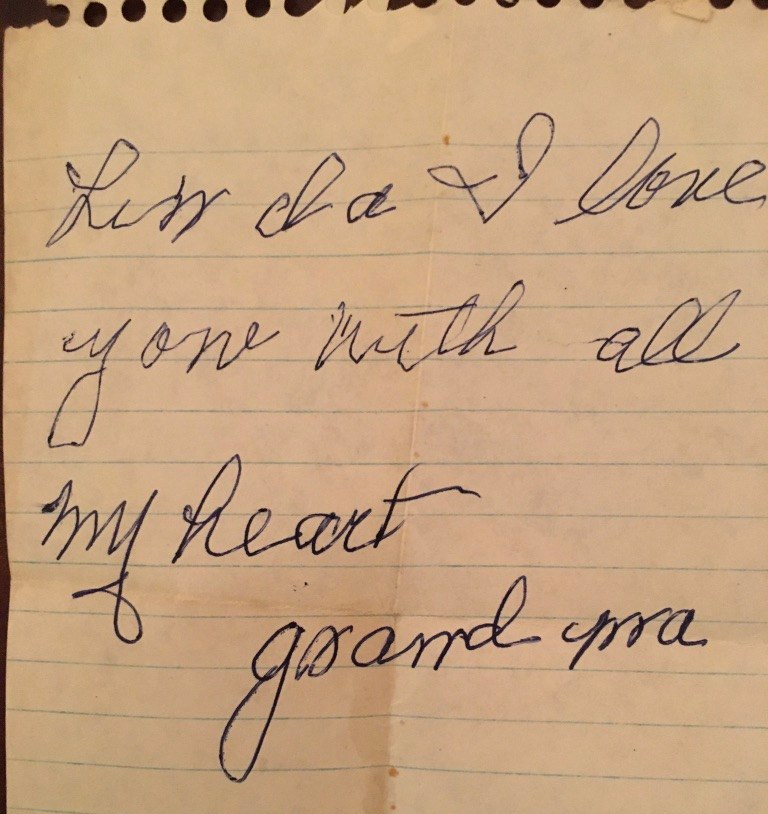 Linda I love
you with all
my heart
grandma